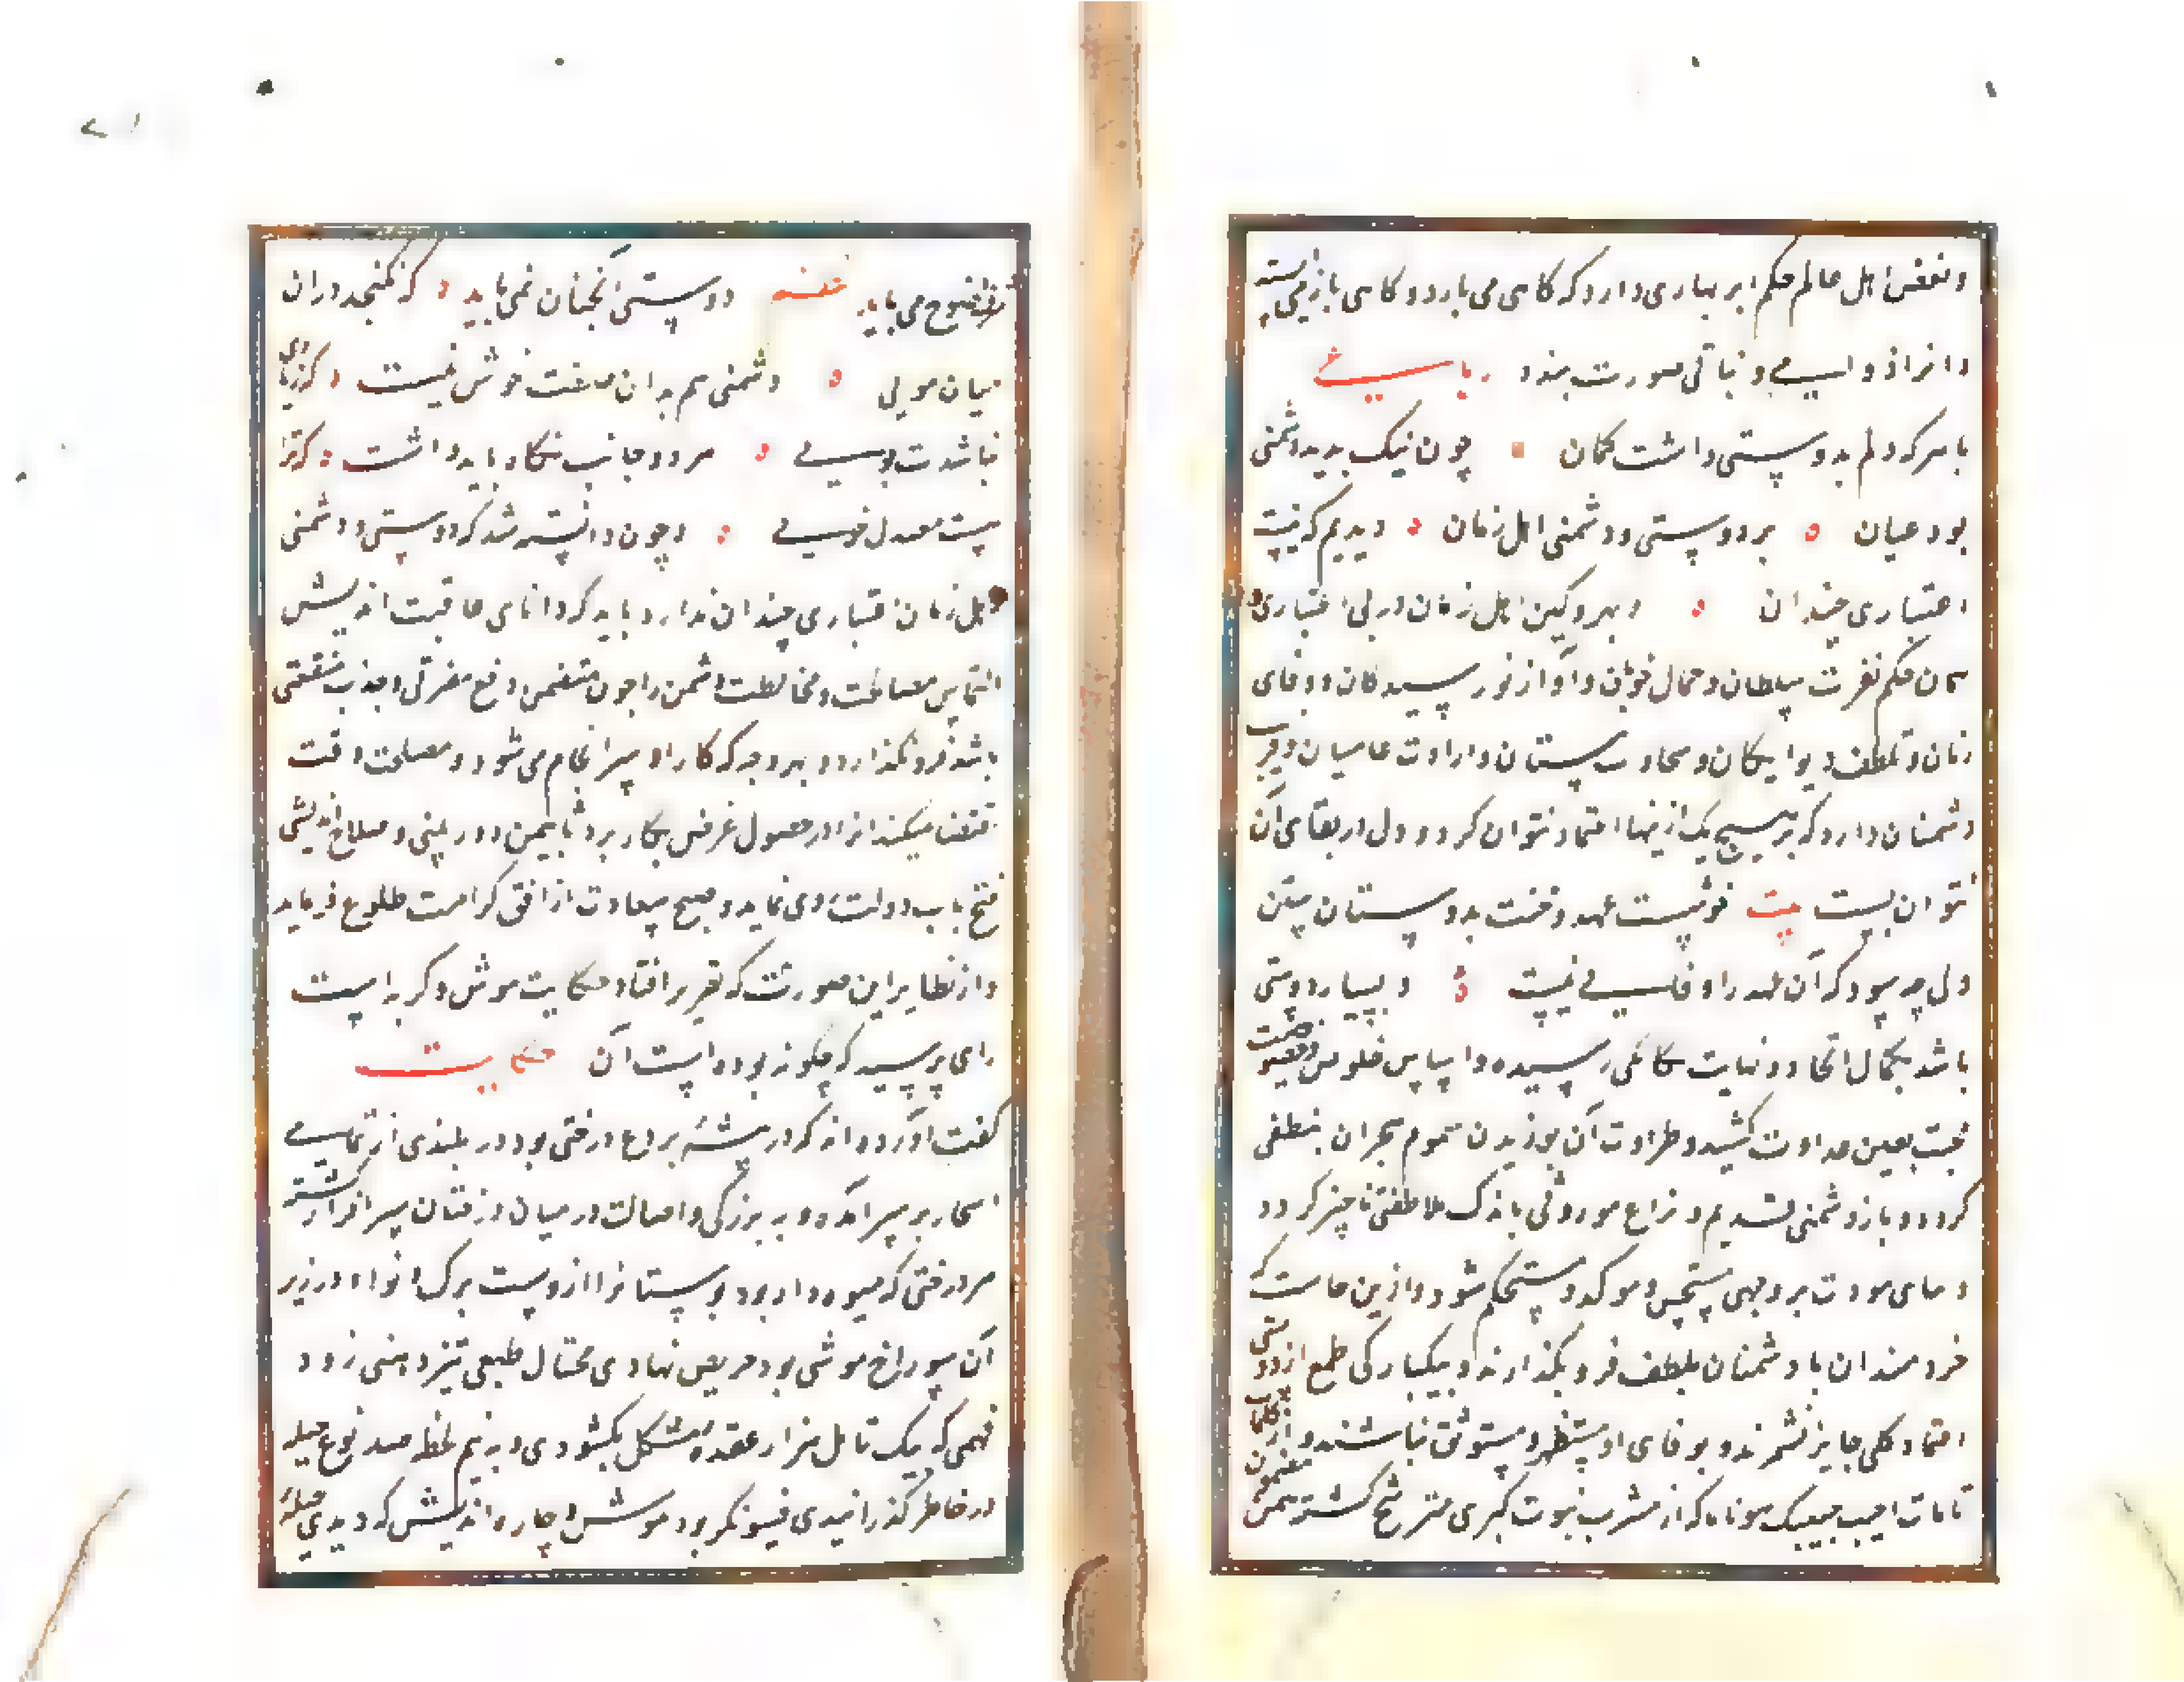 و بغض اهل عالم حکم ابر بهاری دارد که گاهی می بارد و گاهی باز می‌ایستد
و انرا دوامی و ثباتی صورت نبندد رباعی
با هر که دلم بدوستی داشت گمان چون نیک بدید دشمنی
بود عیان بر دوستی و دشمنی اهل زمان دیدیم که نیست
اعتباری چندان و مهر و کین اهل زمان در بی اعتباری
همان حکم تقرب سلطان و جمال خوبان و آواز نورسیدگان و وفای
زنان و تلطف دیوانگان و سخاوت مستان و ارادت عامیان و فریب
دشمنان دارد که بر هیچ یک ازینها اعتماد نتوان کرد و دل در بقای آن
نتوان بست بیت خوشست عهد وفت بدوستان بستن
ولی چه سود که آن عهد را وفایی نیست و بسیار دوستی
باشد بکمال اتحاد و نهایت یگانگی رسیده و اساس خلوص و خصوصیت
محبت بعین عداوت کشید و طراوت آن بوزیدن سموم هجران منطفی
گردد و باز دشمنی قدیم و نزاع موروثی باندک ملاطفتی ناچیز گردد
و بنای مودت بر وجهی مستحسن و موکد و مستحکم شود و ازین جاست که
خردمندان با دشمنان تلطف فرو نگذارند و بیکبارگی طمع از دوستی
اعتماد کلی جایز نشمرند و بوفای او مستظهر و مستوثق نباشند و از
کلمات احبب حبیبک هونا ما که از مشرب نبوت کبری مترشح گشته همین مضمون
مفتوح می باید قطعه دوستی آنچنان نمی باید که نگنجد دران
میان مویی دشمنی هم بدان صفت خوش نیست که زیاری
نباشدت بویی هر دو جانب نگاه باید داشت که ترا
هست معدل خویی و چون دانسته شد که دوستی و دشمنی
اهل زمان اعتباری چندان ندارد باید که دانای عاقبت اندیش
التماس مصالحت و مخالطت دشمن را چون متضمن دفع مضرتی و جذب منفعتی
باشد فرو نگذارد و بهر وجه که کار او سرانجام می شود و مصلحت وقت
اقتضا میکند انرا در حصول غرض بکار برد تا بیمن دوربینی و صلاح اندیشی
فتح باب دولت روی نماید و صبح سعادت از افق کرامت طلوع فرماید
و از نظایر این صورت که تقریر افتاد حکایت موش و گربه است
رای پرسید که چگونه بوده است آن حکایت
گفت آورده اند که در بیشه بردع درختی بود در بلندی از تمامی
اشجار بر سر آمده و به بزرگی و اصالت در میان درختان سرافراز گشته
هر درختی که میوه دار بود بوستان را ازوست برگ و نوا و در زیر
آن سوراخ موشی بود حریص نهادی محتال طبعی تیز ذهنی زود
فهمی که بیک تامل هزار عقده مشکل بگشودی و به نیم لحظه صد نوع حیله
در خاطر گذرانیدی فسونگر بود موش و چاره اندیش که دیدی